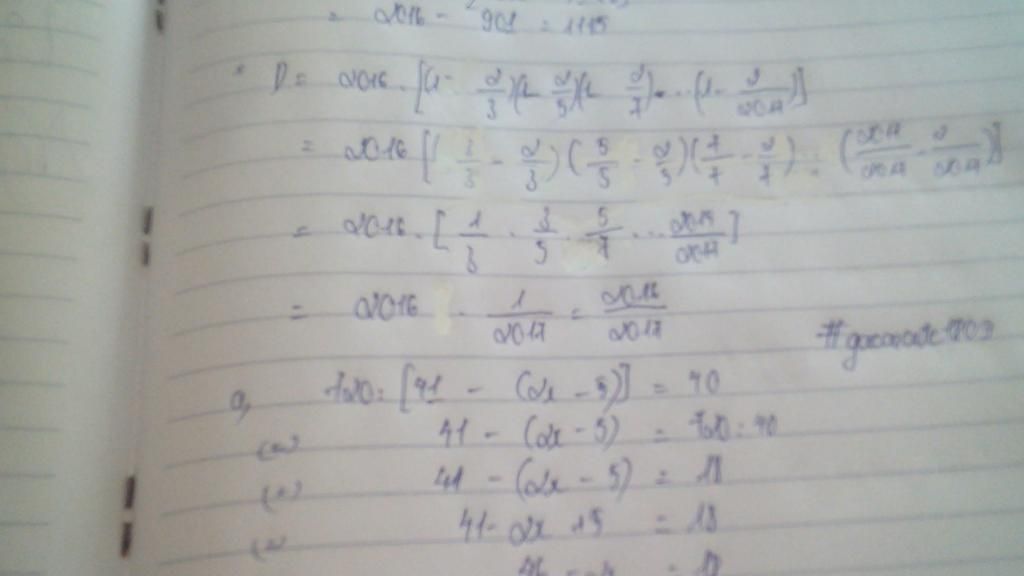 = 2016 - 901 = 1115
* D = 2016 . [(1 - 2/3)(1 - 2/5)(1 - 2/7) ... (1 - 2/2017)]
= 2016 [(3/3 - 2/3)(5/5 - 2/5)(7/7 - 2/7) ... (2017/2017 - 2/2017)]
= 2016 . [1/3 . 3/5 . 5/7 ... 2015/2017]
= 2016 . 1/2017 = 2016/2017
a, 720 : [41 - (2x - 5)] = 40
(=) 41 - (2x - 5) = 720 : 40
(=) 41 - (2x - 5) = 18
(=) 41 - 2x + 5 = 18